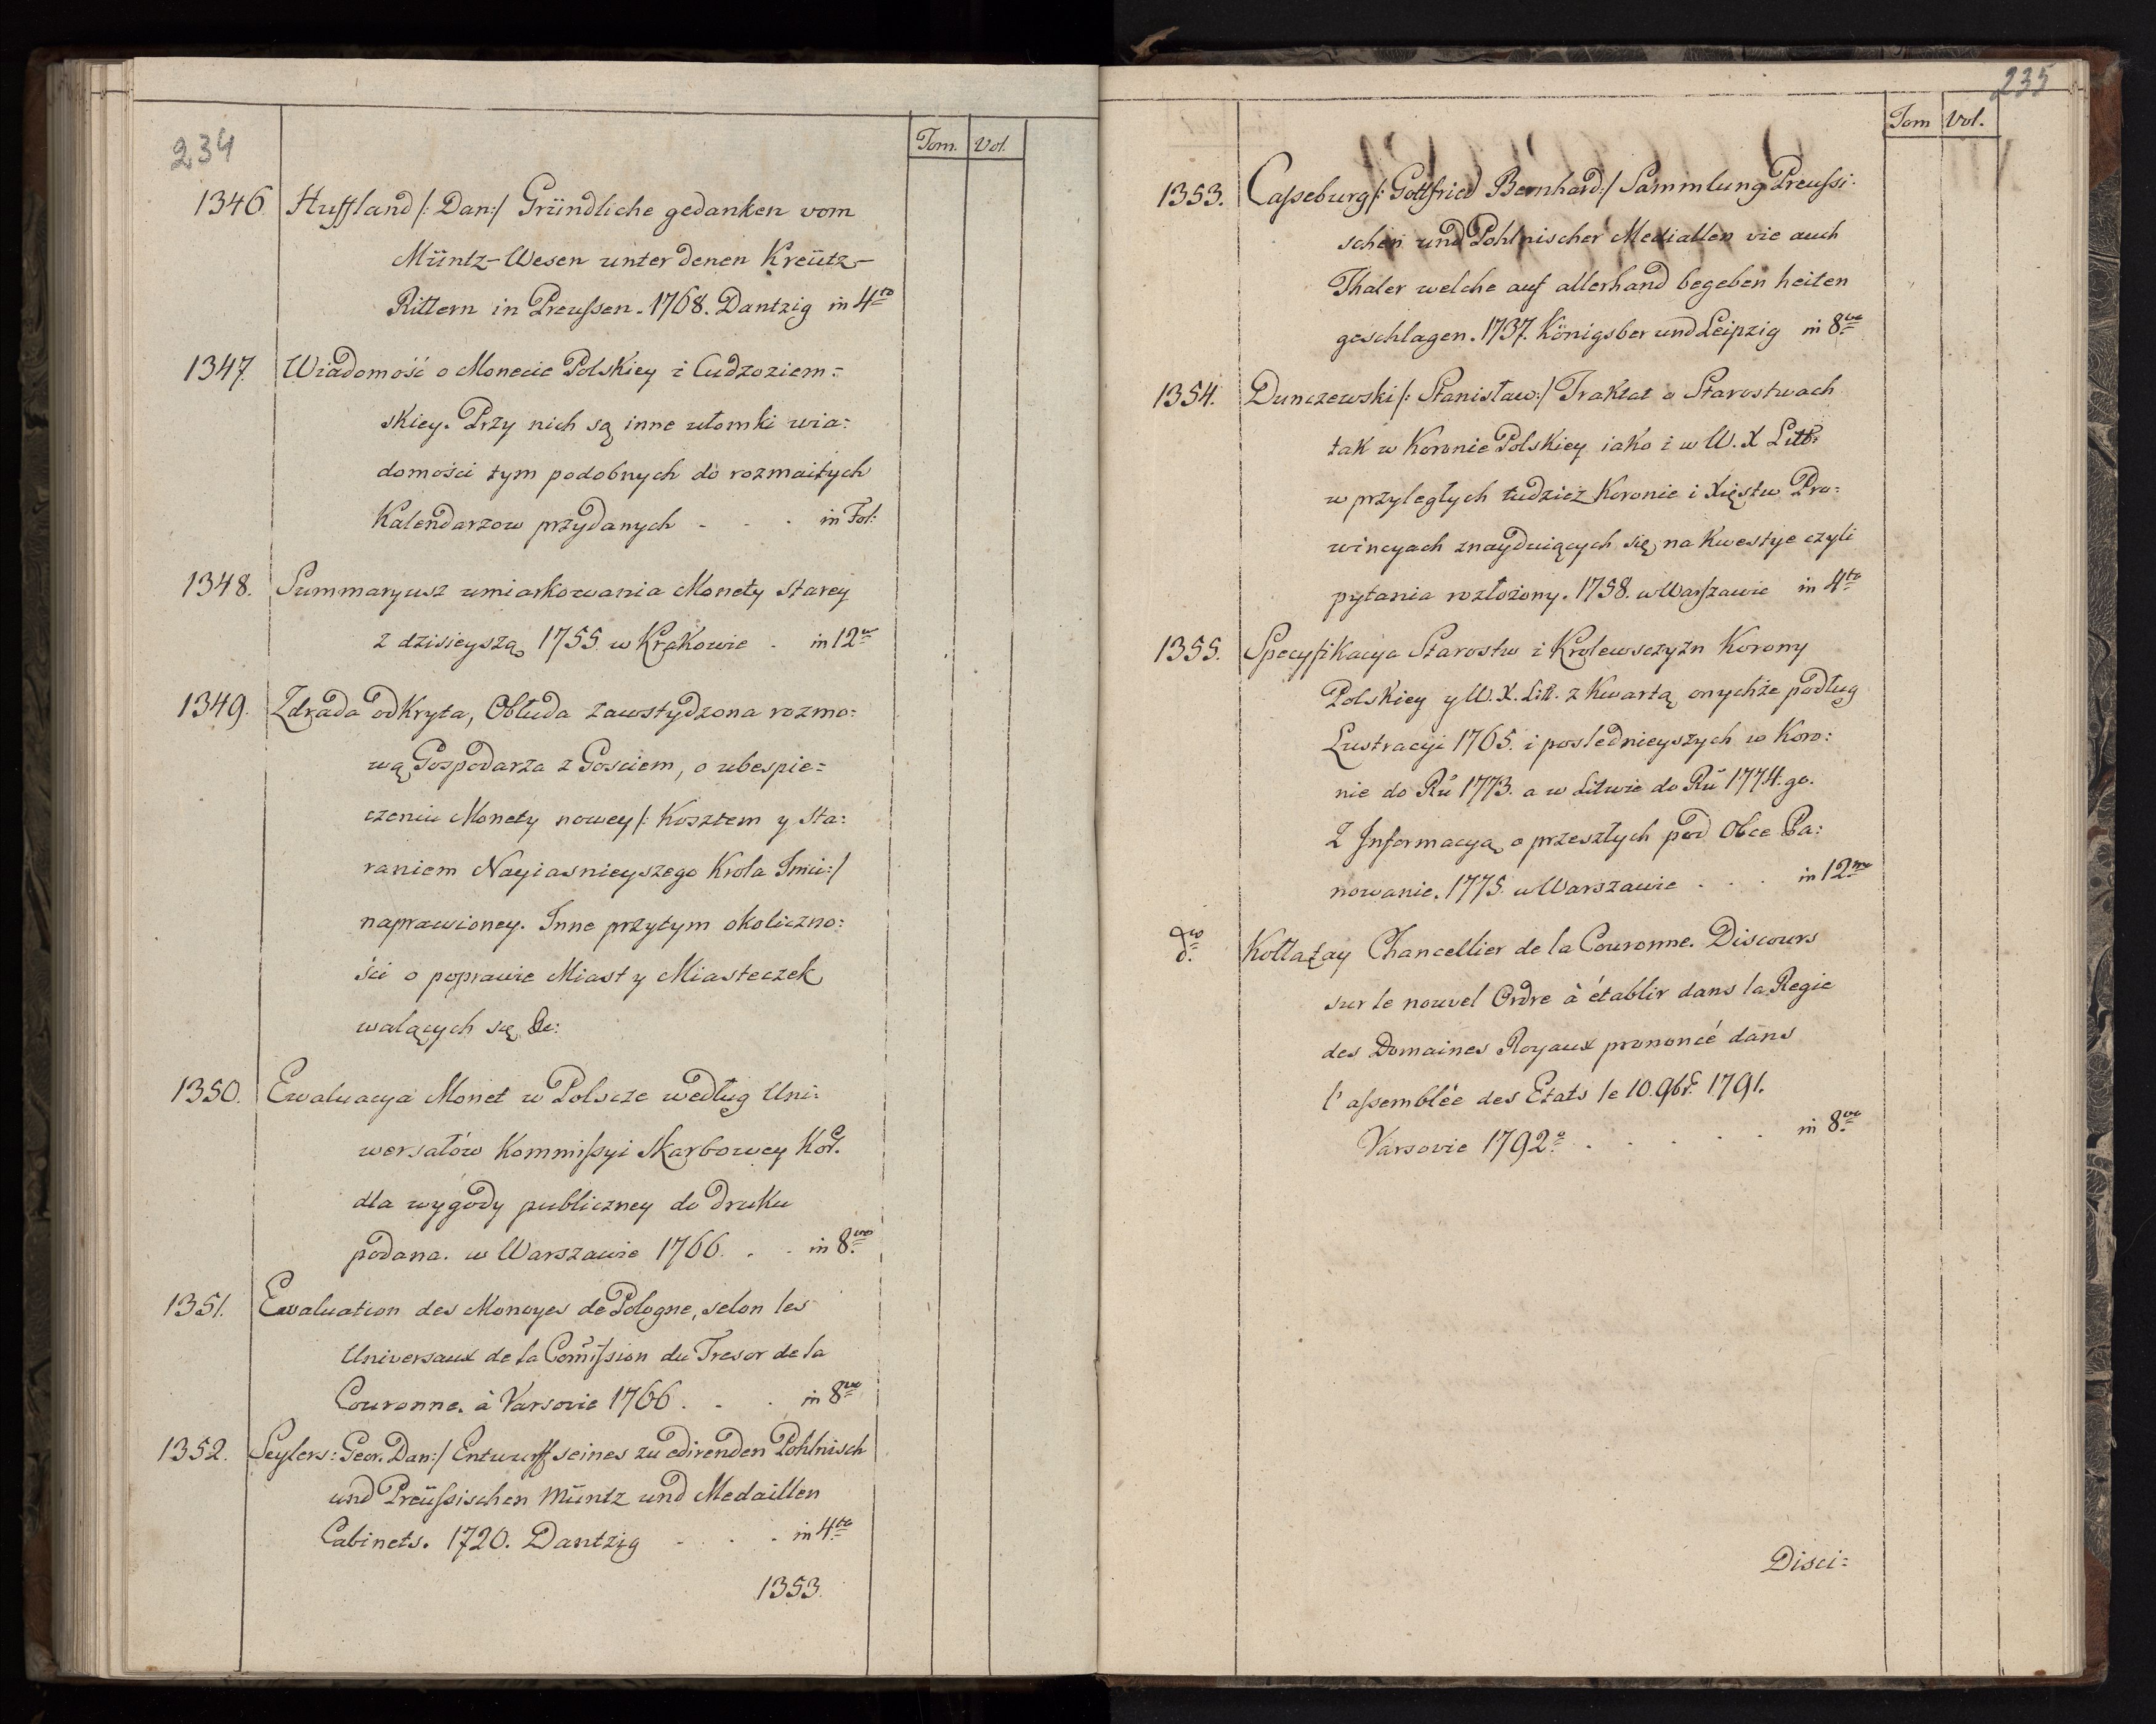 234
Tom. Vol.
1346 Huffland /: Dan:/ Gründliche gedanken vom
Müntz-Wesen unter denen Kreütz-
Rittern in Preussen. 1768. Dantzig in 4to
1347. Wiadomość o Monecie Polskiey i Cudzoziem=
skiey. Przy nich są inne ułomki wia=
domości tym podobnych do rozmaitych
Kalendarzow przydanych - - . in Fol:
1348. Summaryusz umiarkowania Monety starey
z dzisieyszą 1755. w Krakowie . in 12o
1349. Zdrada odkryta, Obłuda zawstydzona rozmo=
wą Gospodarza z Gosciem, o ubespie=
czeniu Monety nowey /: Kosztem y sta=
raniem Nayiasnieyszego Krola Jmci:/
naprawioney. Inne przytym okoliczno=
ści o poprawie Miast y Miasteczek
walących się &c:
1350. Ewaluacya Monet w Polscze według Uni=
wersałów Kommissyi Skarbowey Kor.
dla wygody publiczney do druku
podana. w Warszawie 1766. . - in 8vo
1351. Evaluation des Monoyes de Pologne, selon les
Universaux de la Com̃ission du Tresor de la
Couronne. à Varsovie 1766 . - . in 8vo
1352. Seylers: Geor. Dan:/ Entwurff seines zu edirenden Pohlnisch
und Preüssischen Müntz und Medaillen
Cabinets. 1720. Dantzig - . . in 4to
1353.
235
Tom Vol.
1353. Casseburg /: Gottfried Bernhard:/ Sammlung Preussi-
schen und Pohlnischer Mediallen vie auch
Thaler welche auf allerhand begeben heiten
geschlagen. 1737. Königsber und Leipzig in 8vo
1354. Dunczewski /: Stanisław:/ Traktat o Starostwach
tak w Koronie Polskiey iako i w W. X Litt:
w przyległych tudziez Koronie i Xięstw Pro=
wincyach znayduiących się, na Kwestye czyli
pytania rozłożony. 1758. w Warszawie in 4to
1355. Specyfikacya Starostw i Krolewsczyzn Korony
Polskiey y W. X. Litt. z Kwartą onychże podług
Lustracyi 1765. i poslednieyszych w Koro=
nie do Rũ 1773. a w Litwie do Rũ 1774. go.
Z Informacyą o przeszłych pod Obce Pa=
nowanie. 1775. w Warszawie . . . in 12mo
do Kołłątay Chancellier de la Couronne. Discours
sur le nouvel Ordre à établir dans la Regie
des Domaines Royaux prononcé dans
l'assemblée des Etats le 10. 9br. 1791.
Varsovie 1792o . . . . . in 8vo
Disci=